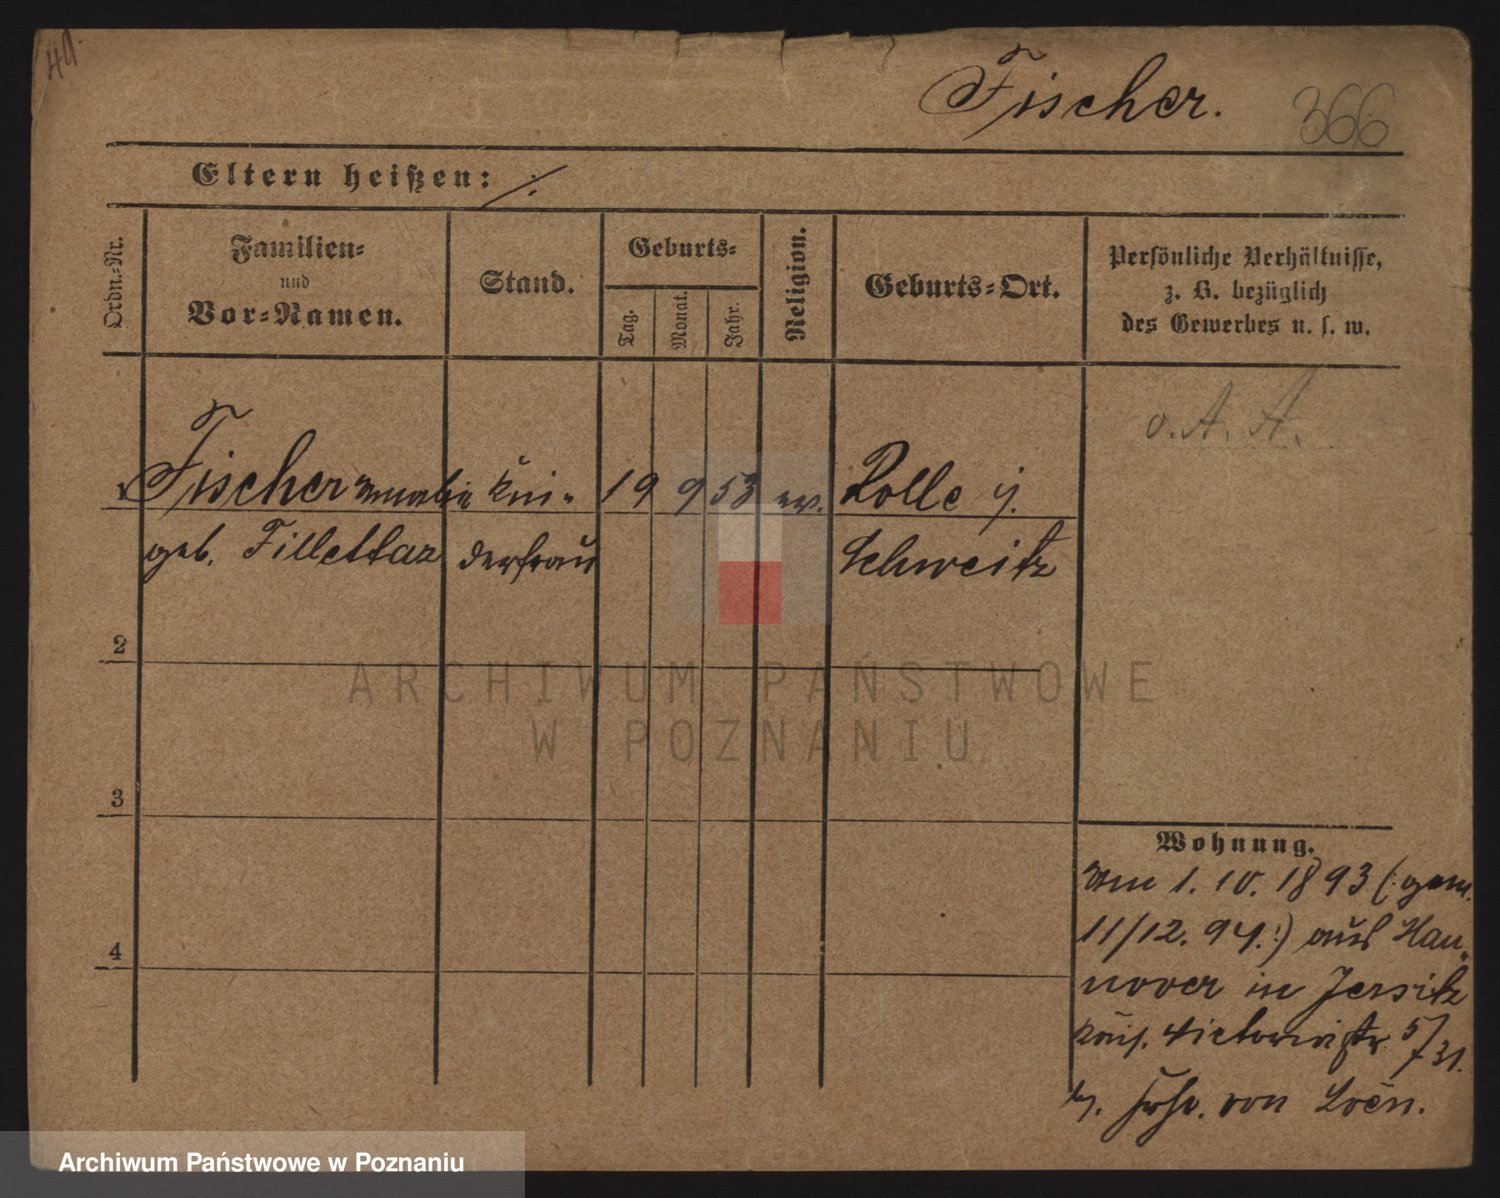 Fischer.
366
Eltern heißen: ·/·
Ordn.-Nr.
Familien-
und
Vor-Namen.
Stand.
Geburts-
Tag.
Monat.
Jahr.
Religion.
Geburts-Ort.
Persönliche Verhältnisse,
z. B. bezüglich
des Gewerbes u. s. w.
o. A. A.
1 Fischer 19 9 53 ev. Rolle
geb. Fillettaz derfrau Schweitz
2
3
4
Wohnung.
Am 1. 10. 1893 (: gem.
11/12. 94. :) aus Han-
nover in Jersitz
Kais. Victoriastr. 5/31.
b. Frhr. von Loën.
ARCHIWUM PAŃSTWOWE
W POZNANIU
Archiwum Państwowe w Poznaniu